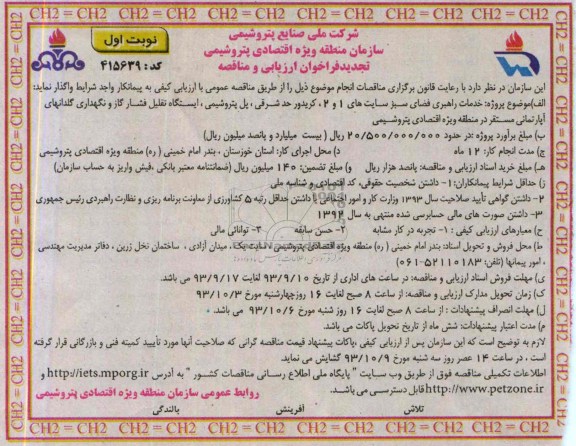 CH2 = CH2 = CH2 = CH2 = CH2 = CH2 = CH2 = CH2 = CH2 = CH2
شرکت ملی صنایع پتروشیمی
سازمان منطقه ویژه اقتصادی پتروشیمی
تجدیدفراخوان ارزیابی و مناقصه
نوبت اول
کد: ۴۱۵۶۳۹
این سازمان در نظر دارد با رعایت قانون برگزاری مناقصات انجام موضوع ذیل را از طریق مناقصه عمومی با ارزیابی کیفی به پیمانکار واجد شرایط واگذار نماید:
الف)موضوع پروژه: خدمات راهبری فضای سبز سایت های ۱ و ۲ ، کریدور حد شرقی ، پل پتروشیمی ، ایستگاه تقلیل فشار گاز و نگهداری گلدانهای
آپارتمانی مستقر در منطقه ویژه اقتصادی پتروشیمی
ب) مبلغ برآورد پروژه :در حدود ۲۰/۵۰۰/۰۰۰/۰۰۰ ریال ( بیست میلیارد و پانصد میلیون ریال)
ج) مدت انجام کار: ۱۲ ماه د) محل اجرای کار: استان خوزستان ، بندر امام خمینی ( ره) منطقه ویژه اقتصادی پتروشیمی
هـ) مبلغ خرید اسناد ارزیابی و مناقصه: پانصد هزار ریال و) مبلغ تضمین: ۱۴۰ میلیون ریال (ضمانتنامه معتبر بانکی ،فیش واریز به حساب سازمان)
ز) حداقل شرایط پیمانکاران:۱- داشتن شخصیت حقوقی، کد اقتصادی و شناسه ملی
۲- داشتن گواهی تأیید صلاحیت سال ۱۳۹۳ وزارت کار و امور اجتماعی یا داشتن حداقل رتبه ۵ کشاورزی از معاونت برنامه ریزی و نظارت راهبردی رئیس جمهوری
۳- داشتن صورت های مالی حسابرسی شده منتهی به سال ۱۳۹۲
ح) معیارهای ارزیابی کیفی : ۱- تجربه در کار مشابه ۲- حسن سابقه ۳- توانائی مالی
ط) محل فروش و تحویل اسناد: بندر امام خمینی ( ره) منطقه ویژه اقتصادی پتروشیمی ، سایت یک، میدان آزادی ، ساختمان نخل زرین ، دفاتر مدیریت مهندسی
، امور پیمانها (تلفن: ۵۲۱۱۰۱۸۳-۰۶۱)
ی) مهلت فروش اسناد ارزیابی و مناقصه: در ساعت های اداری از تاریخ ۹۳/۹/۱۰ لغایت ۹۳/۹/۱۷ می باشد.
ک) زمان تحویل مدارک ارزیابی و مناقصه: از ساعت ۸ صبح لغایت ۱۶ روزچهارشنبه مورخ ۹۳/۱۰/۳
ل) مهلت انصراف پیشنهادات : از ساعت ۸ صبح لغایت ۱۶ روز شنبه مورخ ۹۳/۱۰/۶ می باشد .
م) مدت اعتبار پیشنهادات: شش ماه از تاریخ تحویل پاکات می باشد.
لازم به توضیح است که این سازمان پس از ارزیابی کیفی ،پاکات پیشنهاد قیمت مناقصه گرانی که صلاحیت آنها مورد تأیید کمیته فنی و بازرگانی قرار گرفته
است ، در ساعت ۱۴ عصر روز سه شنبه مورخ ۹۳/۱۰/۹ گشایش می نماید.
اطلاعات تکمیلی مناقصه فوق از طریق وب سایت " پایگاه ملی اطلاع رسانی مناقصات کشور " به آدرس http://iets.mporg.ir و
http://www.petzone.ir قابل دسترسی می باشد.
روابط عمومی سازمان منطقه ویژه اقتصادی پتروشیمی
تلاش آفرینش بالندگی
CH2 = CH2 = CH2 = CH2 = CH2 = CH2 = CH2 = CH2 = CH2 = CH2